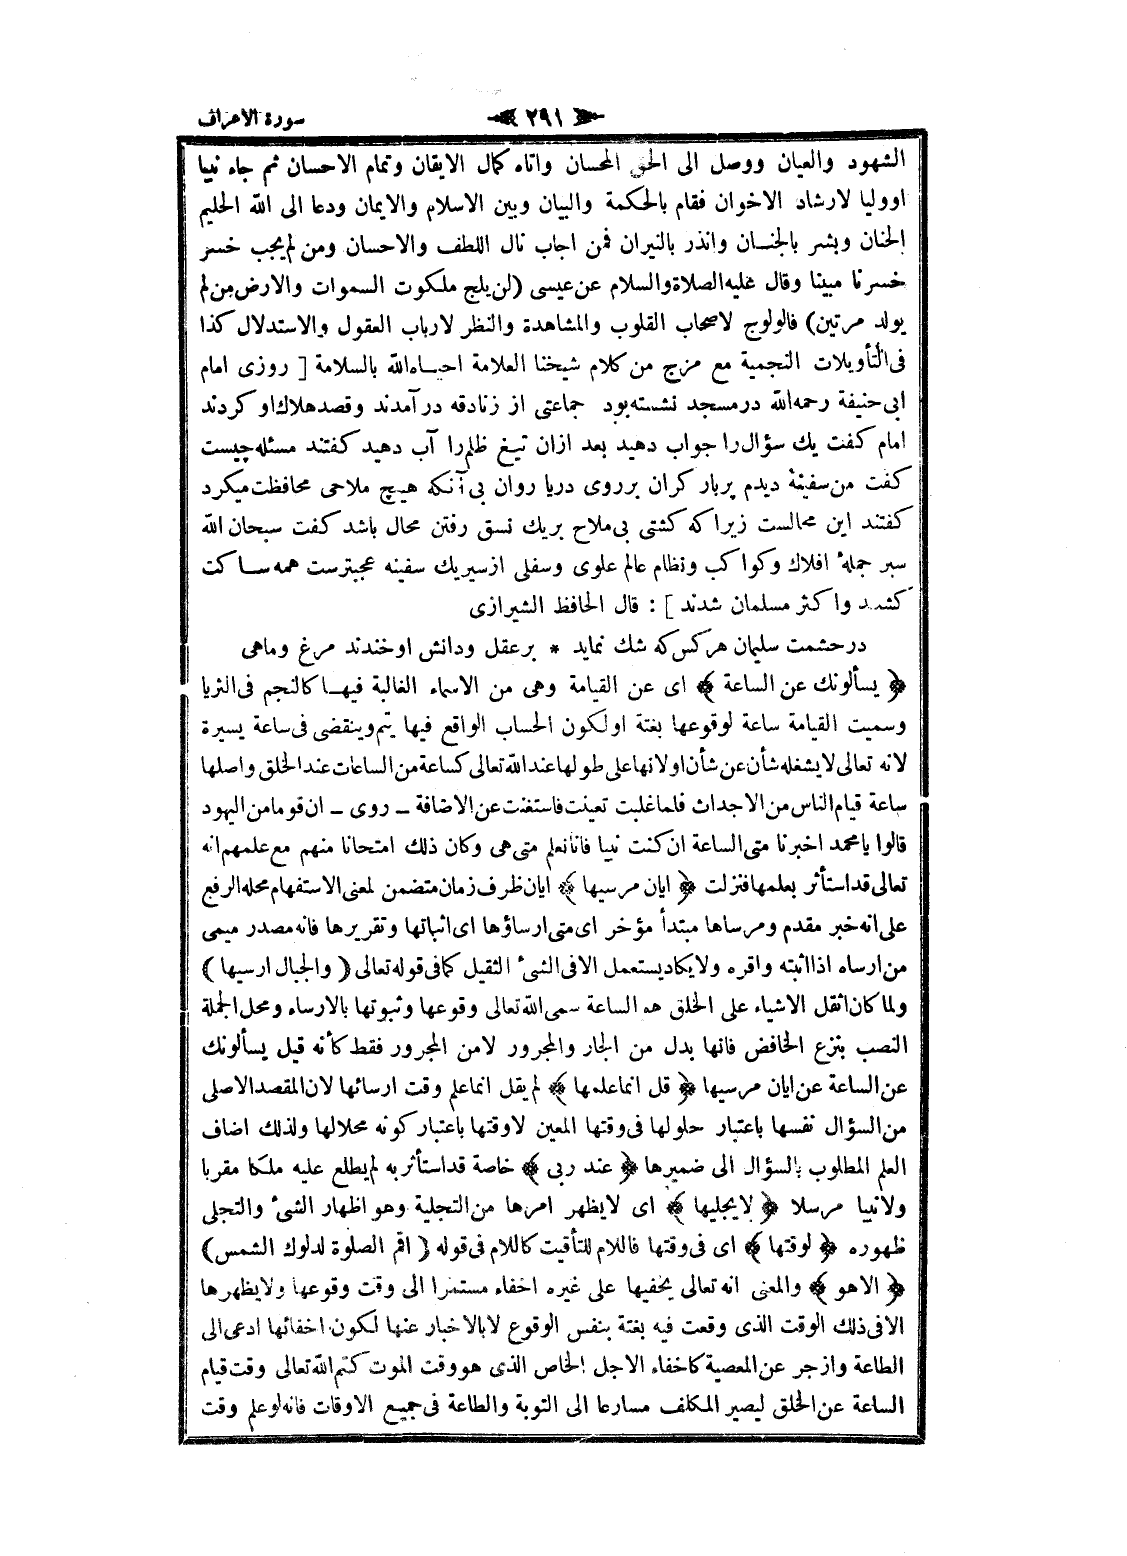 سورة الاعراف
﴿ ٢٩١ ﴾
الشهود والعيان ووصل الى الحق المحسان واتاه كمال الايقان وتمام الاحسان ثم جاء نبيا
اووليا لارشاد الاخوان فقام بالحكمة والبيان وبين الاسلام والايمان ودعا الى الله الحليم
الحنان وبشر بالجنان وانذر بالنيران فمن اجاب نال اللطف والاحسان ومن لم يجب خسر
خسرنا مبينا وقال عليه الصلاة والسلام عن عيسى (لن يلج ملكوت السموات والارض من لم
يولد مرتين) فالولوج لاصحاب القلوب والمشاهدة والنظر لارباب العقول والاستدلال كذا
فى التأويلات النجمية مع مزج من كلام شيخنا العلامة احياه الله بالسلامة [ روزى امام
ابى حنيفة رحمه الله در مسجد نشسته بود جماعتى از زنادقه در آمدند وقصد هلاك او كردند
امام كفت يك سؤال را جواب دهيد بعد ازان تيغ ظلم را آب دهيد كفتند مسئله چيست
كفت من سفينۀ ديدم پربار كران برروى دريا روان بى آنكه هيچ ملاحى محافظت ميكرد
كفتند اين محالست زيرا كه كشتى بى ملاح بريك نسق رفتن محال باشد كفت سبحان الله
سير جملۀ افلاك وكواكب ونظام عالم علوى وسفلى از سير يك سفينه عجبترست همه ساكت
كشتند واكثر مسلمان شدند ] : قال الحافظ الشيرازى
در حشمت سليمان هر كس كه شك نمايد * بر عقل ودانش او خندند مرغ وماهى
﴿ يسألونك عن الساعة ﴾ اى عن القيامة وهى من الاسماء الغالبة فيها كالنجم فى الثريا
وسميت القيامة ساعة لوقوعها بغتة اولكون الحساب الواقع فيها يتم وينقضى فى ساعة يسيرة
لانه تعالى لا يشغله شأن عن شأن اولانها على طولها عند الله تعالى كساعة من الساعات عند الخلق واصلها
ساعة قيام الناس من الاجداث فلما غلبت تعينت فاستغنت عن الاضافة ـ روى ـ ان قوما من اليهود
قالوا يا محمد اخبرنا متى الساعة ان كنت نبيا فانا نعلم متى هى وكان ذلك امتحانا منهم مع علمهم انه
تعالى قد استأثر بعلمها فنزلت ﴿ ايان مرسيها ﴾ ايان ظرف زمان متضمن لمعنى الاستفهام محله الرفع
على انه خبر مقدم ومرساها مبتدأ مؤخر اى متى ارساؤها اى اثباتها وتقريرها فانه مصدر ميمى
من ارساه اذا اثبته واقره ولا يكاد يستعمل الا فى الشئ الثقيل كما فى قوله تعالى ( والجبال ارسيها )
ولما كان اثقل الاشياء على الخلق هه الساعة سمى الله تعالى وقوعها وثبوتها بالارساء ومحل الجملة
النصب بنزع الخافض فانها بدل من الجار والمجرور لا من المجرور فقط كأنه قيل يسألونك
عن الساعة عن ايان مرسيها ﴿ قل انما علمها ﴾ لم يقل انما علم وقت ارسائها لان المقصد الاصلى
من السؤال نفسها باعتبار حلولها فى وقتها المعين لا وقتها باعتبار كونه محلالها ولذلك اضاف
العلم المطلوب بالسؤال الى ضميرها ﴿ عند ربى ﴾ خاصة قد استأثر به لم يطلع عليه ملكا مقربا
ولا نبيا مرسلا ﴿ لا يجليها ﴾ اى لا يظهر امرها من التجلية وهو اظهار الشئ والتجلى
ظهوره ﴿ لوقتها ﴾ اى فى وقتها فاللام للتأقيت كاللام فى قوله ( اقم الصلوة لدلوك الشمس )
﴿ الا هو ﴾ والمعنى انه تعالى يخفيها على غيره اخفاء مستمرا الى وقت وقوعها ولا يظهرها
الا فى ذلك الوقت الذى وقعت فيه بغتة بنفس الوقوع لا بالاخبار عنها لكون اخفائها ادعى الى
الطاعة وازجر عن المعصية كاخفاء الاجل الخاص الذى هو وقت الموت كتم الله تعالى وقت قيام
الساعة عن الخلق ليصير المكلف مسارعا الى التوبة والطاعة فى جميع الاوقات فانه لو علم وقت